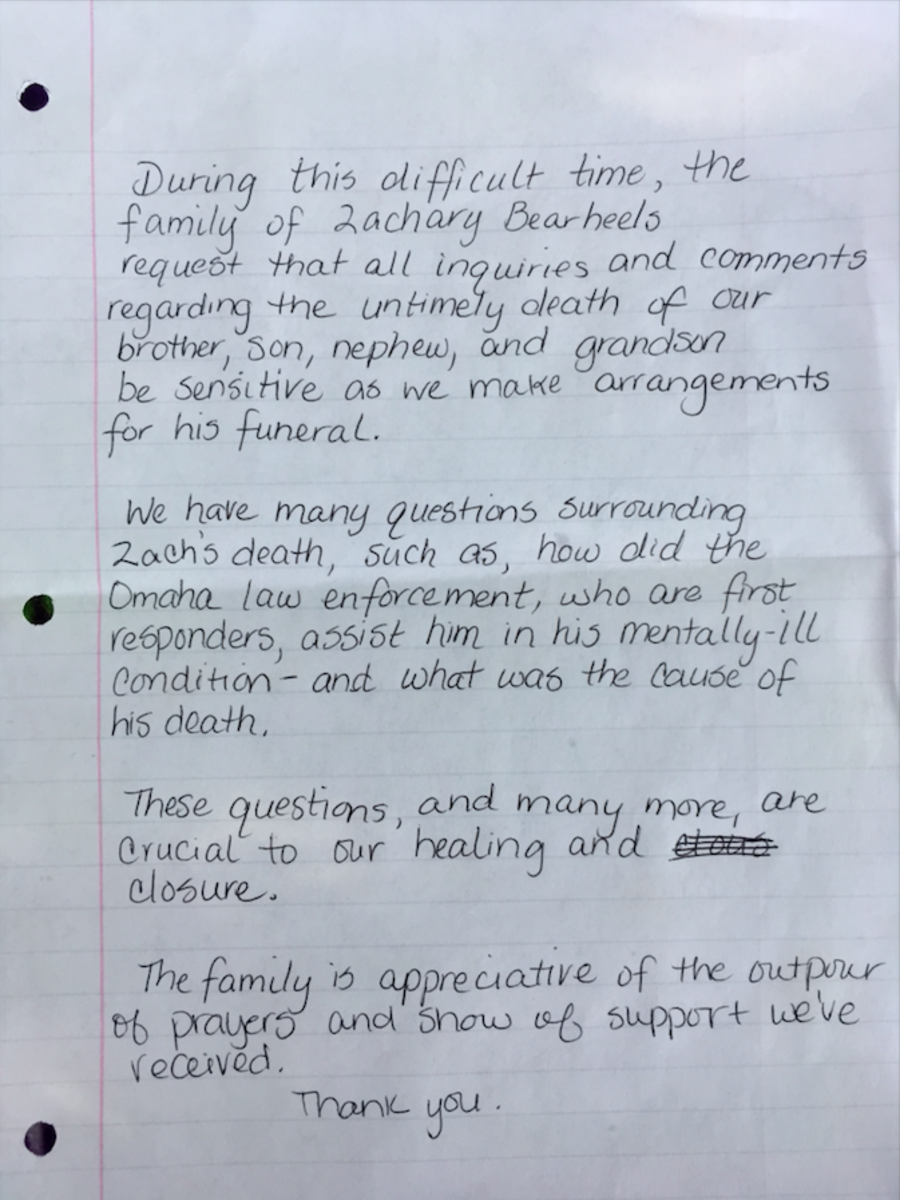 During this difficult time, the
family of Zachary Bearheels
request that all inquiries and comments
regarding the untimely death of our
brother, son, nephew, and grandson
be sensitive as we make arrangements
for his funeral.
We have many questions surrounding
Zach's death, such as, how did the
Omaha law enforcement, who are first
responders, assist him in his mentally-ill
condition - and what was the cause of
his death.
These questions, and many more, are
crucial to our healing and
closure.
The family is appreciative of the outpour
of prayers and show of support we've
received.
Thank you.